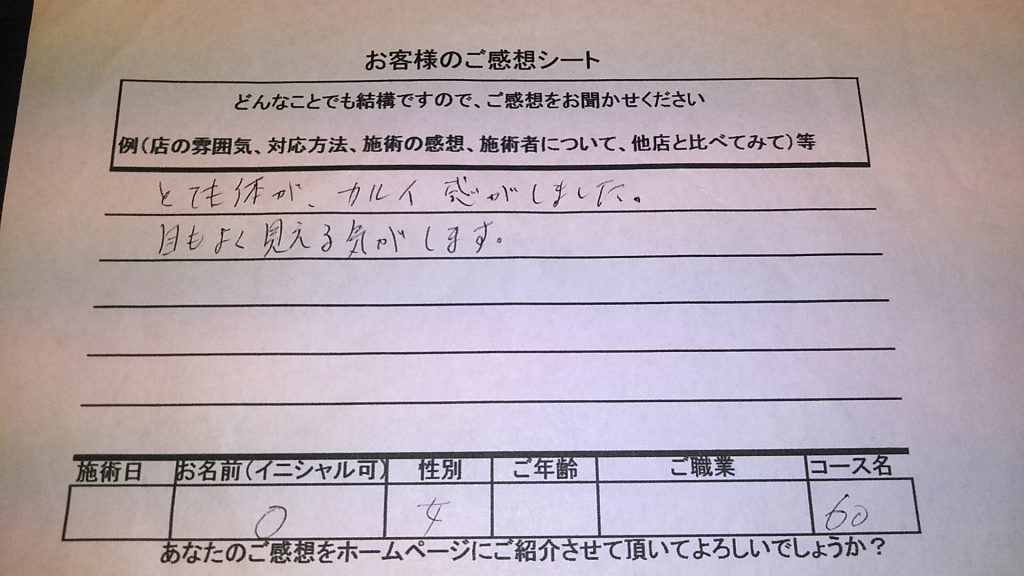 お客様のご感想シート
どんなことでも結構ですので、ご感想をお聞かせください
例(店の雰囲気、対応方法、施術の感想、施術者について、他店と比べてみて)等
とても体が、カルイ感がしました。
目もよく見える気がします。
施術日 お名前(イニシャル可) 性別 ご年齢 ご職業 コース名
O 女 60
あなたのご感想をホームページにご紹介させて頂いてよろしいでしょうか?